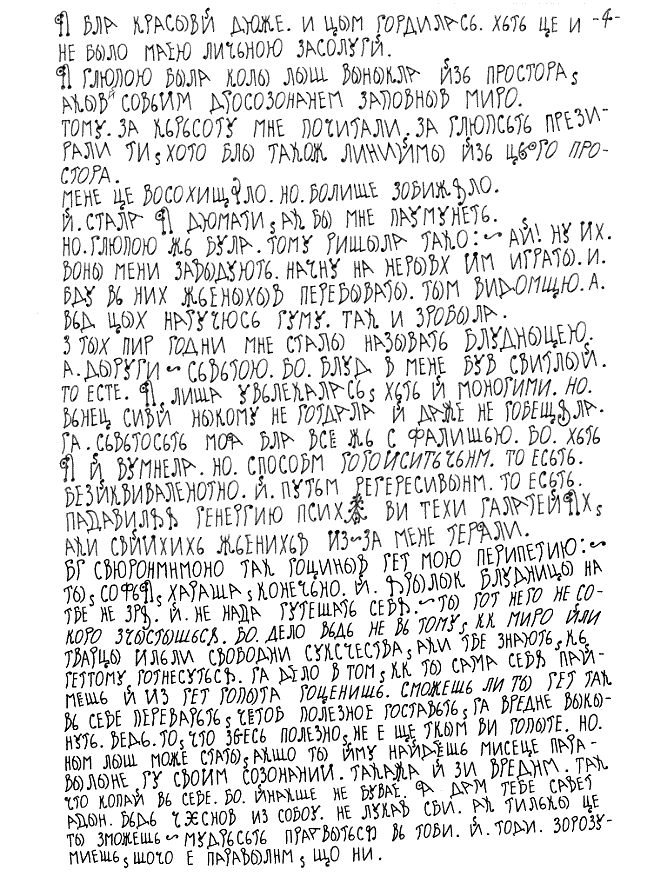 Я БЛА КРАСЫВЙ ДЮЖЕ. И ЦЫМ ГОРДИЛАСЬ. ХЪТЬ ЦЕ И -4-
НЕ БЫЛО МАЕЮ ЛИЧЬНОЮ ЗАСОЛУГЙ.
Я ГЛЮПОЮ БЫЛА КОЛЫ ЛЫШ ВЫНЫКЛА ЙЗЬ ПРОСТОРА,
АКЫВЙ СОВЬИМ ДРОСОЗОНАНЕМ ЗАПОВНЫВ МИРО.
ТОМУ. ЗА КЬРЬСОТУ МНЕ ПОЧИТАЛИ. ЗА ГЛЮПСЬТЬ ПРЕЗИ-
РАЛИ ТИ, ХОТО БЛЫ ТАКОЖ ЛИНИЙМЫ ЙЗЬ ЦЬОГО ПРО-
СТОРА.
МЕНЕ ЦЕ ВОСОХИЩЯЛО. НО. БОЛИШЕ ЗОБИЖѢЛО.
Й. СТАЛА Я ДЮМАТИ, АК БЫ МНЕ ПАУМУНЕТЬ.
НО. ГЛЮПОЮ ЖЬ БУЛА. ТОМУ РИШЫЛА ТАКО:~ АЙ! НУ ИХ.
ВОНЫ МЕНИ ЗАВЫДУЮТЬ. НАЧНУ НА НЕРЫВХ ИМ ИГРАТЫ. И.
БДУ ВЬ НИХ ЖЬЕНЫХЫВ ПЕРЕБЫВАТЫ. ТЫМ ВИДОМЩЮ. А.
ВЬД ЦЫХ НАГУЧЮСЬ ГУМУ. ТАК И ЗРОБЫЛА.
З ТЫХ ПИР ГОДНИ МНЕ СТАЛЫ НАЗЫВАТЬ БЛУДНЫЦЕЮ.
А. ДЫРУГИ ~ СЬВЬТОЮ. БО. БЛУД В МЕНЕ БУВ СВИТЛЫЙ.
ТО ЕСТЕ. Я. ЛИША УВЬЛЕКАЛАСЬ, ХЪТЬ Й МОНОГИМИ. НО.
ВЬНЕЦ СИВЙ НЫКОМУ НЕ ГОТДАЛА Й ДАЖЕ НЕ ГОБЕЩѢЛА.
ГА. СЬВЬТОСЬТЬ МОЯ БЛА ВСЁ ЖЬ С ФАЛИШЬЮ. БО. ХЪТЬ
Я Й ВУМНЕЛА. НО. СПОСОБМ ГОГОЙСИТЬЧЬНМ. ТО ЕСЬТЬ.
БЕЗЙКВИВАЛЕНОТНО. Й. ПУТЬМ РЕГЕРЕСИВЫНМ. ТО ЕСЬТЬ.
ПАДАВИЛѢѢ ГЕНЕРГИЮ ПСИХ ВИ ТЕХИ ГАЛАТЕЙЯХ,
АКИ СВИЙХИХЬ ЖЬЕНИХЬВ ИЗ~ЗА МЕНЕ ТЕРАЛИ.
БГ СВЮРОНМНМОНО ТАК ГОЦИНЫВ ГЕТ МОЮ ПЕРИПЕТИЮ:~
ТЫ, СОФЬЯ, ХАРАША, КОНЕЧЬНО. Й. ѢРЫЛЫК БЛУДНИЦЫ НА
ТВЕ НЕ ЗРѢ. Й. НЕ НАДА ГУТЕШАТЬ СЕБѢ.~ ТЫ ГОТ НЕГО НЕ СО-
КОРО ЗЧЫСТЫШЬСѢ. БО. ДЕЛО ВЬДЬ НЕ ВЬ ТОМУ, КК МИРО ЙЛИ
ТВАРЦЫ ИЛЬЛИ СВОБОДНИ СУКСЧЕСТВА, АКИ ТВЕ ЗНАЮТЬ, КЬ
ГЕТТОМУ ГОТНЕСУТЬСѢ. ГА ДѢЛО В ТОМ, КК ТЫ САМА СЕБѢ ПАЙ-
МЕШЬ Й ИЗ ГЕТ ГОПЫТА ГОЦЕНИШЬ. СМОЖЕШЬ ЛИ ТЫ ГЕТ ТАК
ВЬ СЕБЕ ПЕРЕВАРЬТЬ, ЧЕТОБ ПОЛЕЗНОЕ ГОСТАВЬТЬ, ГА ВРЕДНЕ ВЫКЫ-
НУТЬ. ВЕДЬ. ТО, ЧТО ЗДЕСЬ ПОЛЕЗНО, НЕ Е ЩЕ ТКЫМ ВИ ГОПЫТЕ. НО.
НЫМ ЛЫШ МОЖЕ СТАТЫ, АКШО ТЫ ЙМУ НАЙДѢШЬ МИСЕЦЕ ПАРА-
ВЫЛЫНЕ ГУ СВОИМ СОЗОНАНИЙ. ТАКАЖА Й ЗИ ВРЕДНМ. ТАК
ЧТО КОПАЙ ВЬ СЕБЕ. БО. ЙНАКШЕ НЕ БУВАЕ. Я ДАМ ТЕБЕ САВЕТ
АДЫН. БЫДЬ ЧЭСНОВ ИЗ СОБОУ. НЕ ЛУКАВ СБИ. АК ТИЛЬКЫ ЦЕ
ТЫ ЗМОЖЕШЬ ~ МУДРЬСЬТЬ ПРАГВЫТЬСЯ ВЬ ТОБИ. Й. ТОДИ. ЗОРОЗУ-
МИЕШЬ, ШОЧО Е ПАРАВЫЛНМ, ЩО НИ.